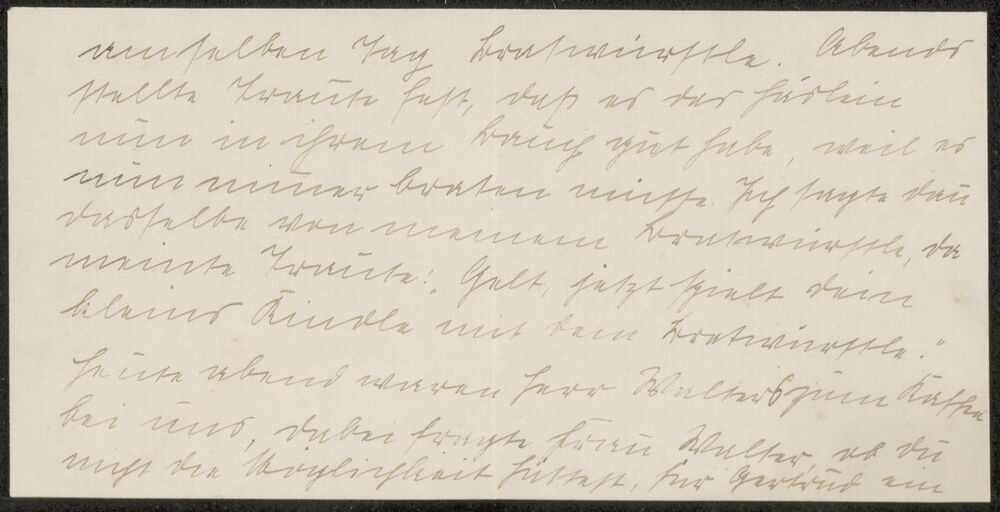 am selben Tag Bratwürstle. Abends
stellte Traute fest, daß es das Häslein
nun in ihrem Bauch gut habe, weil es
nun nimmer braten müsse. Ich sagte dan
dasselbe von meinem Bratwürstle, da
meinte Traute: „Gelt, jetzt spielt dein
kleins Kindle mit dem Bratwürstle."
Heute abend waren Herr Walters zum Kaffee
bei uns, dabei fragte Frau Walter, ob du
nicht die Möglichkeit hättest, für Gertrud ein